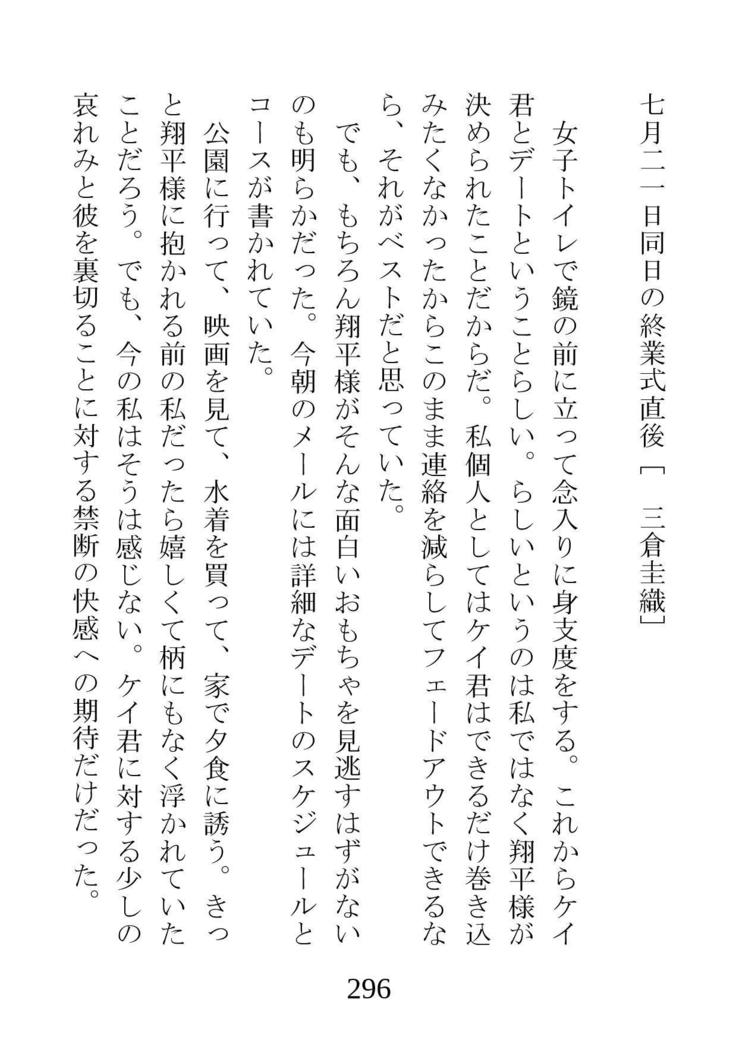 七月二一日同日の終業式直後［　三倉圭織］
　女子トイレで鏡の前に立って念入りに身支度をする。これからケイ
君とデートということらしい。らしいというのは私ではなく翔平様が
決められたことだからだ。私個人としてはケイ君はできるだけ巻き込
みたくなかったからこのまま連絡を減らしてフェードアウトできるな
ら、それがベストだと思っていた。
　でも、もちろん翔平様がそんな面白いおもちゃを見逃すはずがない
のも明らかだった。今朝のメールには詳細なデートのスケジュールと
コースが書かれていた。
　公園に行って、映画を見て、水着を買って、家で夕食に誘う。きっ
と翔平様に抱かれる前の私だったら嬉しくて柄にもなく浮かれていた
ことだろう。でも、今の私はそうは感じない。ケイ君に対する少しの
哀れみと彼を裏切ることに対する禁断の快感への期待だけだった。
296